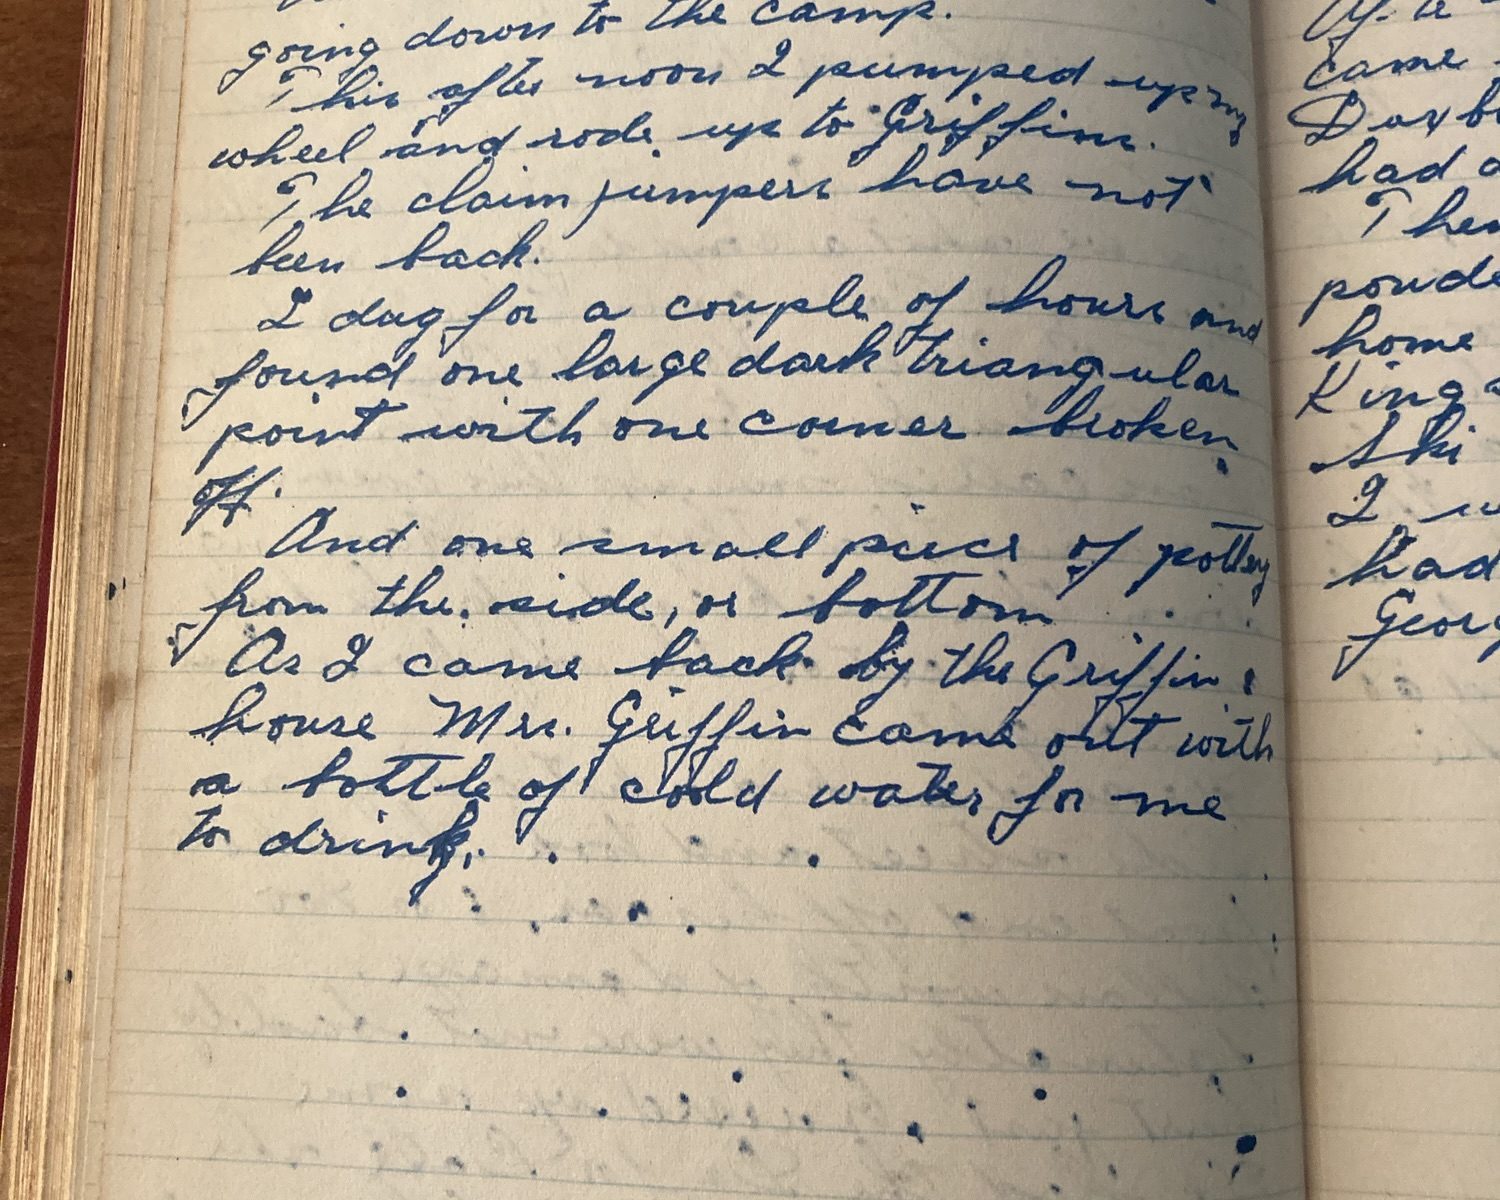 going down to the camp.
This after noon I pumped up my
wheel and rode up to Griffins.
The claim jumpers have not
been back.
I dug for a couple of hours and
found one large dark triangular
point with one corner broken
off.
And one small piece of pottery
from the side, or bottom
As I came back by the Griffins
house Mrs. Griffin came out with
a bottle of cold water for me
to drink.
came
had
The
home
King
Ski
I
had